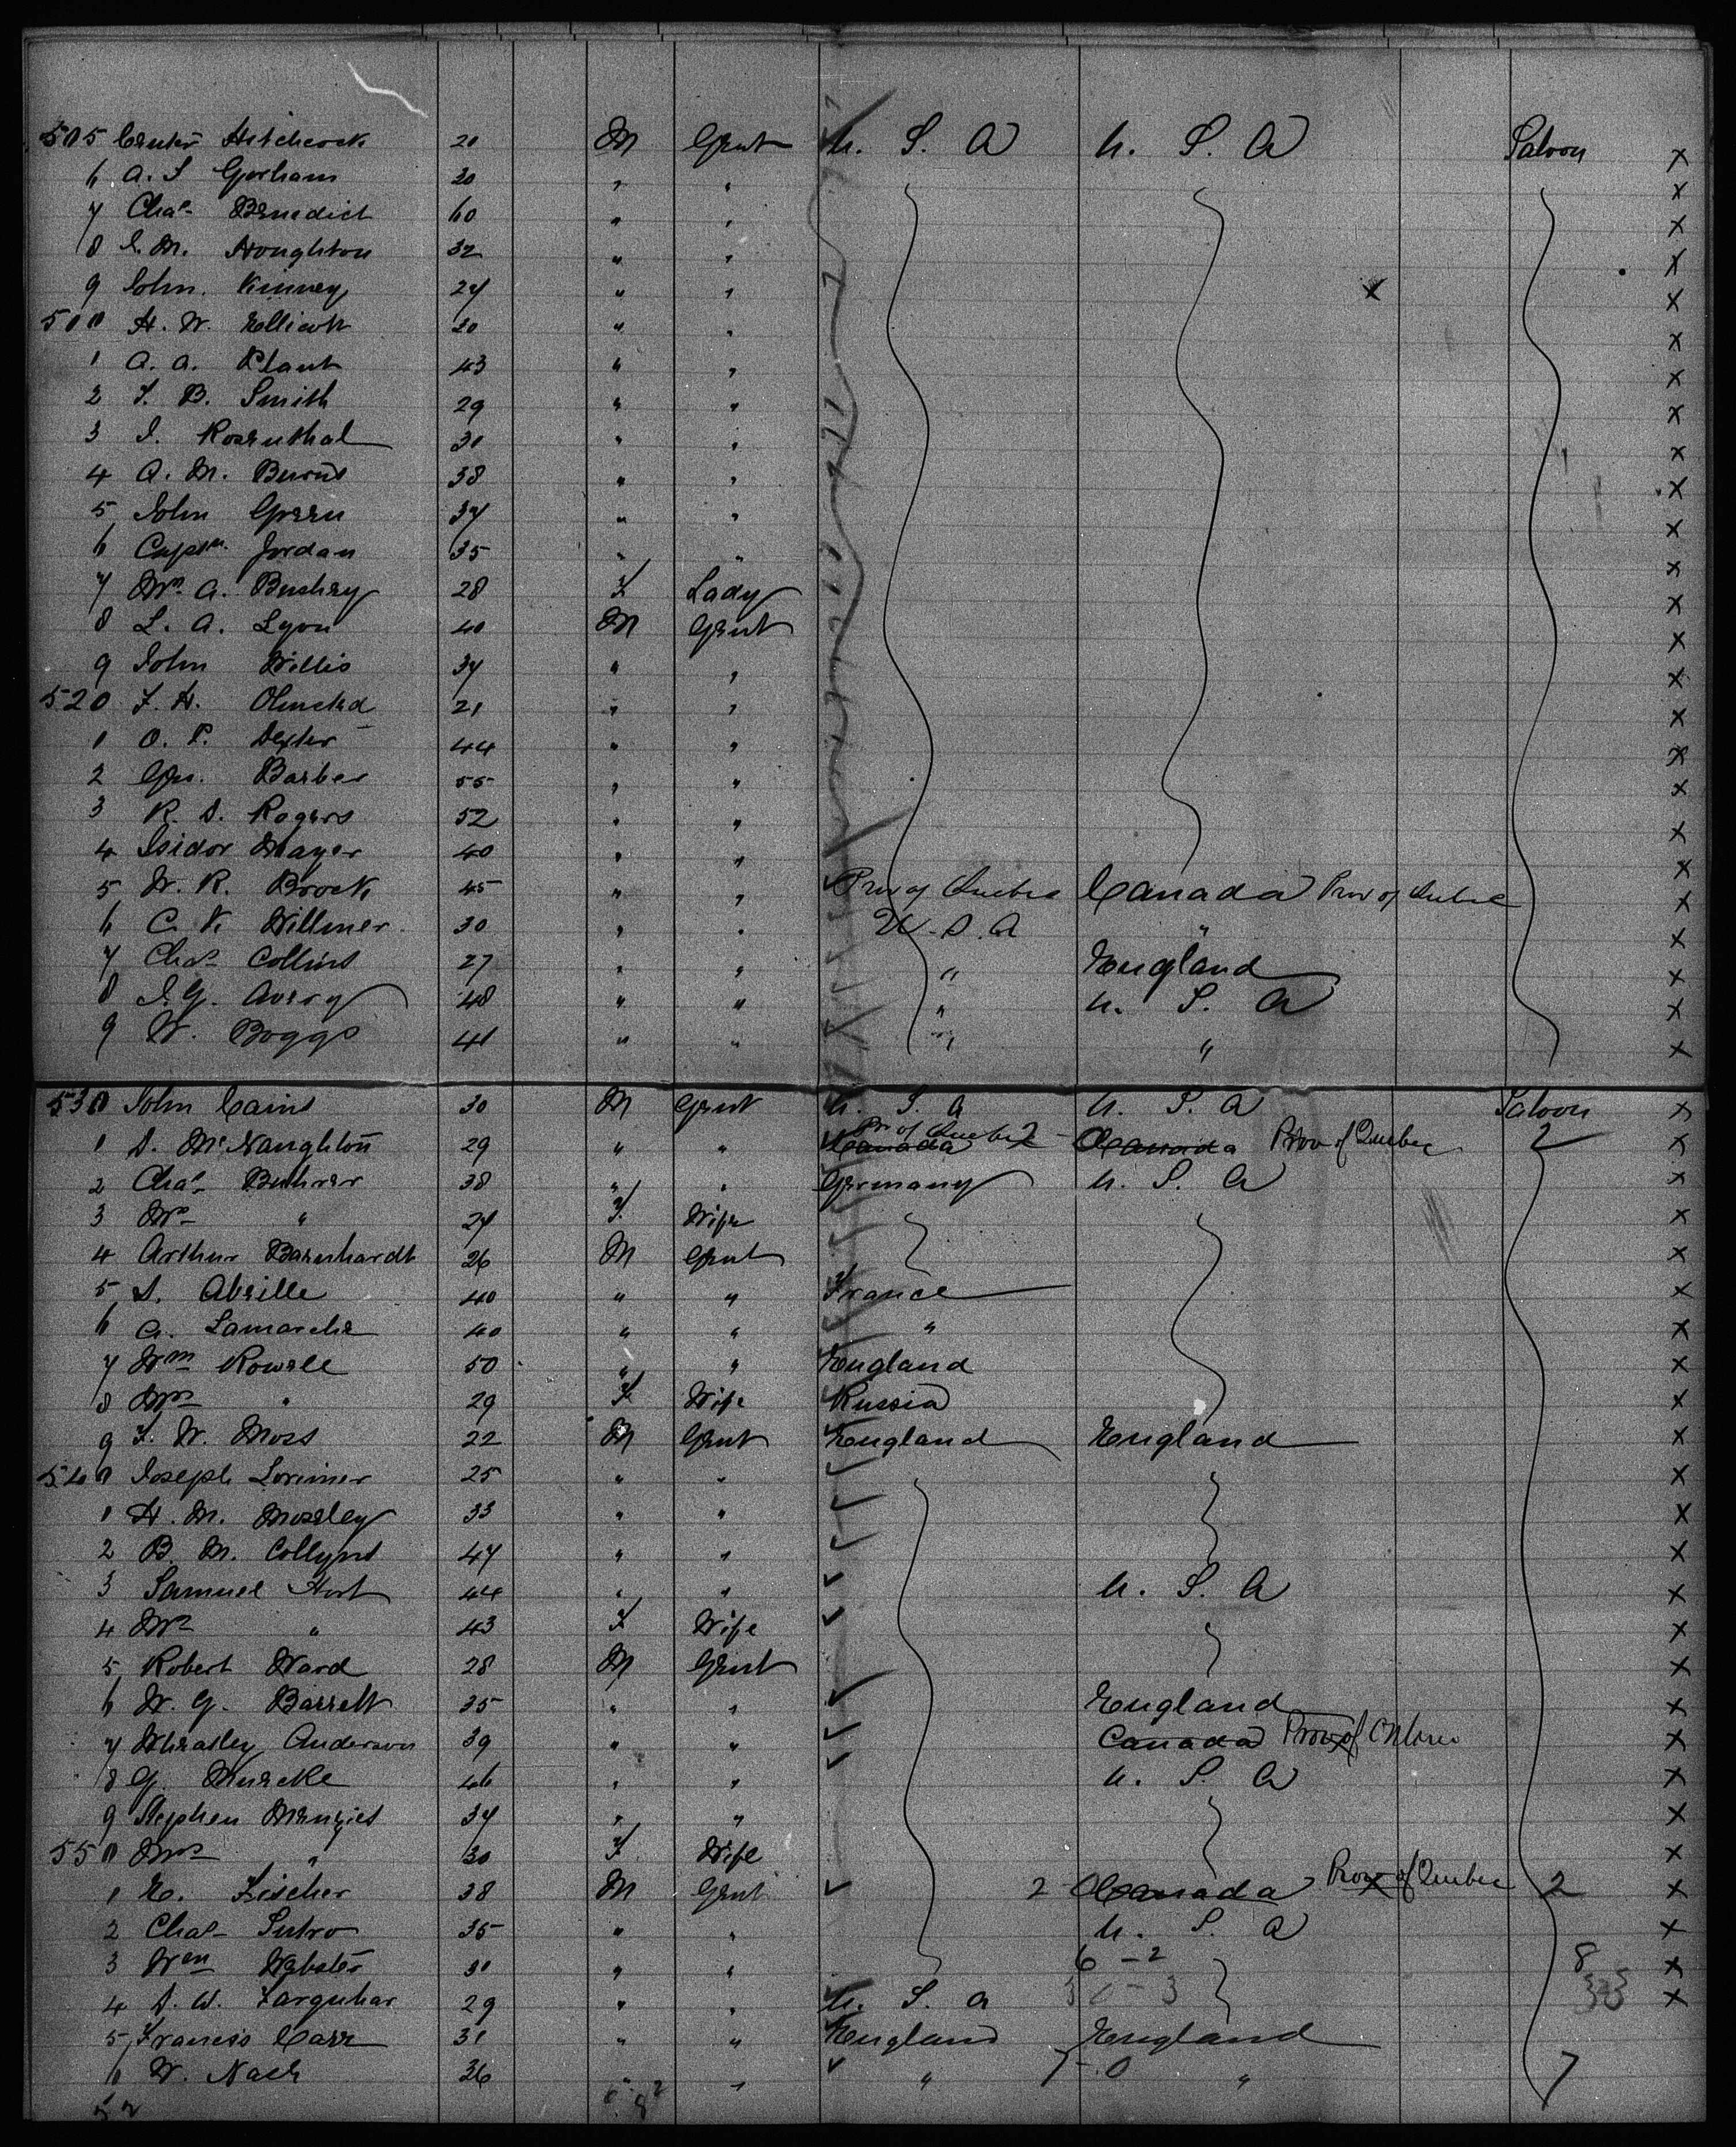 505 Center Hitchcock 20 M Gent U. S. A U. S. A Saloon X
6 A. S Gorham 30 " " X
7 Chas Benedict 60 " " X
8 J. M. Houghton 32 " " X
9 John Kinney 27 " " X
510 H. W. Ellicott 30 " " X
1 A. A. Plant 43 " " X
2 F. B. Smith 29 " " X
3 J. Rosenthal 30 " " X
4 A. M. Burns 38 " " X
5 John Green 37 " " X
6 Captn Jordan 35 " " X
7 Mrs A. Bushey 28 F Lady X
8 L. A. Lyon 40 M Gent X
9 John Willis 37 " " X
520 F. H. Olmsted 21 " " X
1 O. P. Dexter 44 " " X
2 Geo. Barber 55 " " X
3 R. D. Rogers 52 " " X
4 Isidor Mayer 40 " " X
5 W. R. Brock 45 " " Prov of Quebec Canada Prov of Quebec X
6 C. K. Willmer 30 " " U. S. A " X
7 Chas Collins 27 " " " England X
8 J. G. Avery 48 " " " U. S. A X
9 W. Boggs 41 " " " " X
530 John Cains 30 M Gent U. S. A U. S. A Saloon X
1 D. McNaughton 29 " " Canada Prov of Quebec 2 Canada Prov of Quebec 2 X
2 Chas Buhrer 38 " " Germany U. S. A X
3 Mrs " 27 F Wife X
4 Arthur Barnhardt 26 M Gent X
5 D. Abeille 40 " " France X
6 A. Lamarche 40 " " " X
7 Wm Rowell 50 " " England X
8 Mrs " 29 F Wife Russia X
9 F. W. Moss 22 M Gent England England X
540 Joseph Lorimer 25 " " X
1 H. M. Mosely 33 " " X
2 B. M. Collyns 47 " " X
3 Samuel Hort 44 " " U. S. A X
4 Mrs " 43 F Wife X
5 Robert Ward 28 M Gent X
6 W. G. Barrett 35 " " England X
7 Wheatley Anderson 39 " " Canada Prov of Ontario X
8 G. Muecke 46 " " U. S. A X
9 Stephen Menzies 37 " " X
550 Mrs " 30 F Wife X
1 E. Fischer 38 M Gent 2 Canada Prov of Quebec 2 X
2 Chas Sutro 35 " " U. S. A X
3 Wm Webster 30 " " 6 - 2 8 X
4 D. W. Farquhar 29 " " U. S. A 30 - 3 33 X
5 Francis Carr 31 " " England England
6 W. Nash 36 " " " 7 - 0 " 7
52